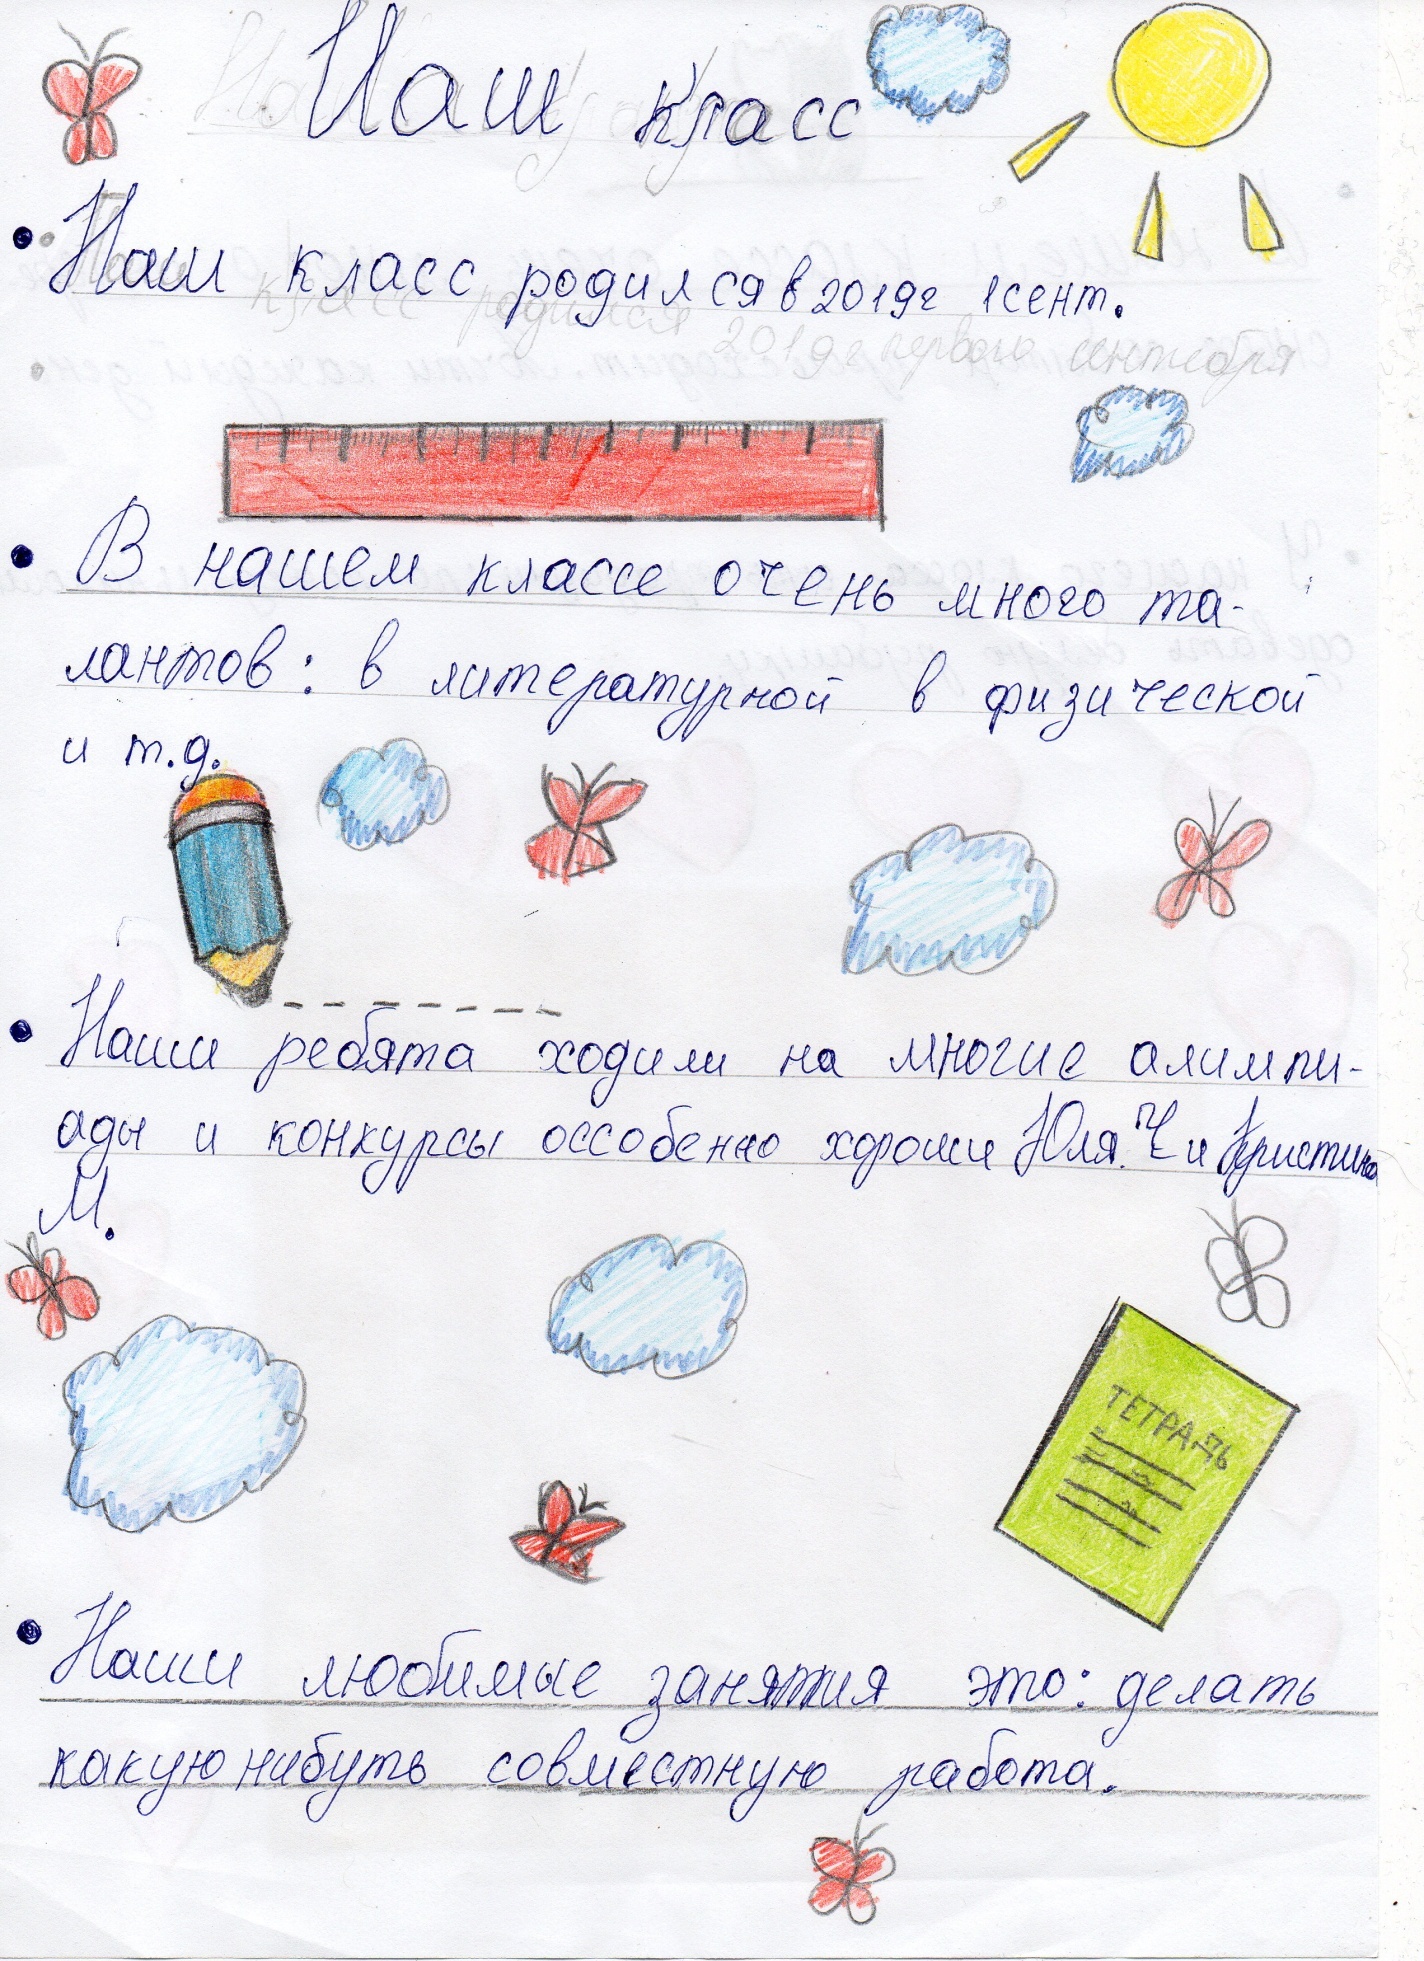 Наш класс
• Наш класс родился в 2019г 1 сент.
2019г первого сентября
• В нашем классе очень много та-
лантов: в литературной в физической
и т.д.
• Наши ребята ходили на многие алимпи-
ады и конкурсы оссобенно хороши Юля.Ч и Кристина
М.
ТЕТРАДЬ
• Наши любимые занятия это: делать
какую нибуть совместную работа.